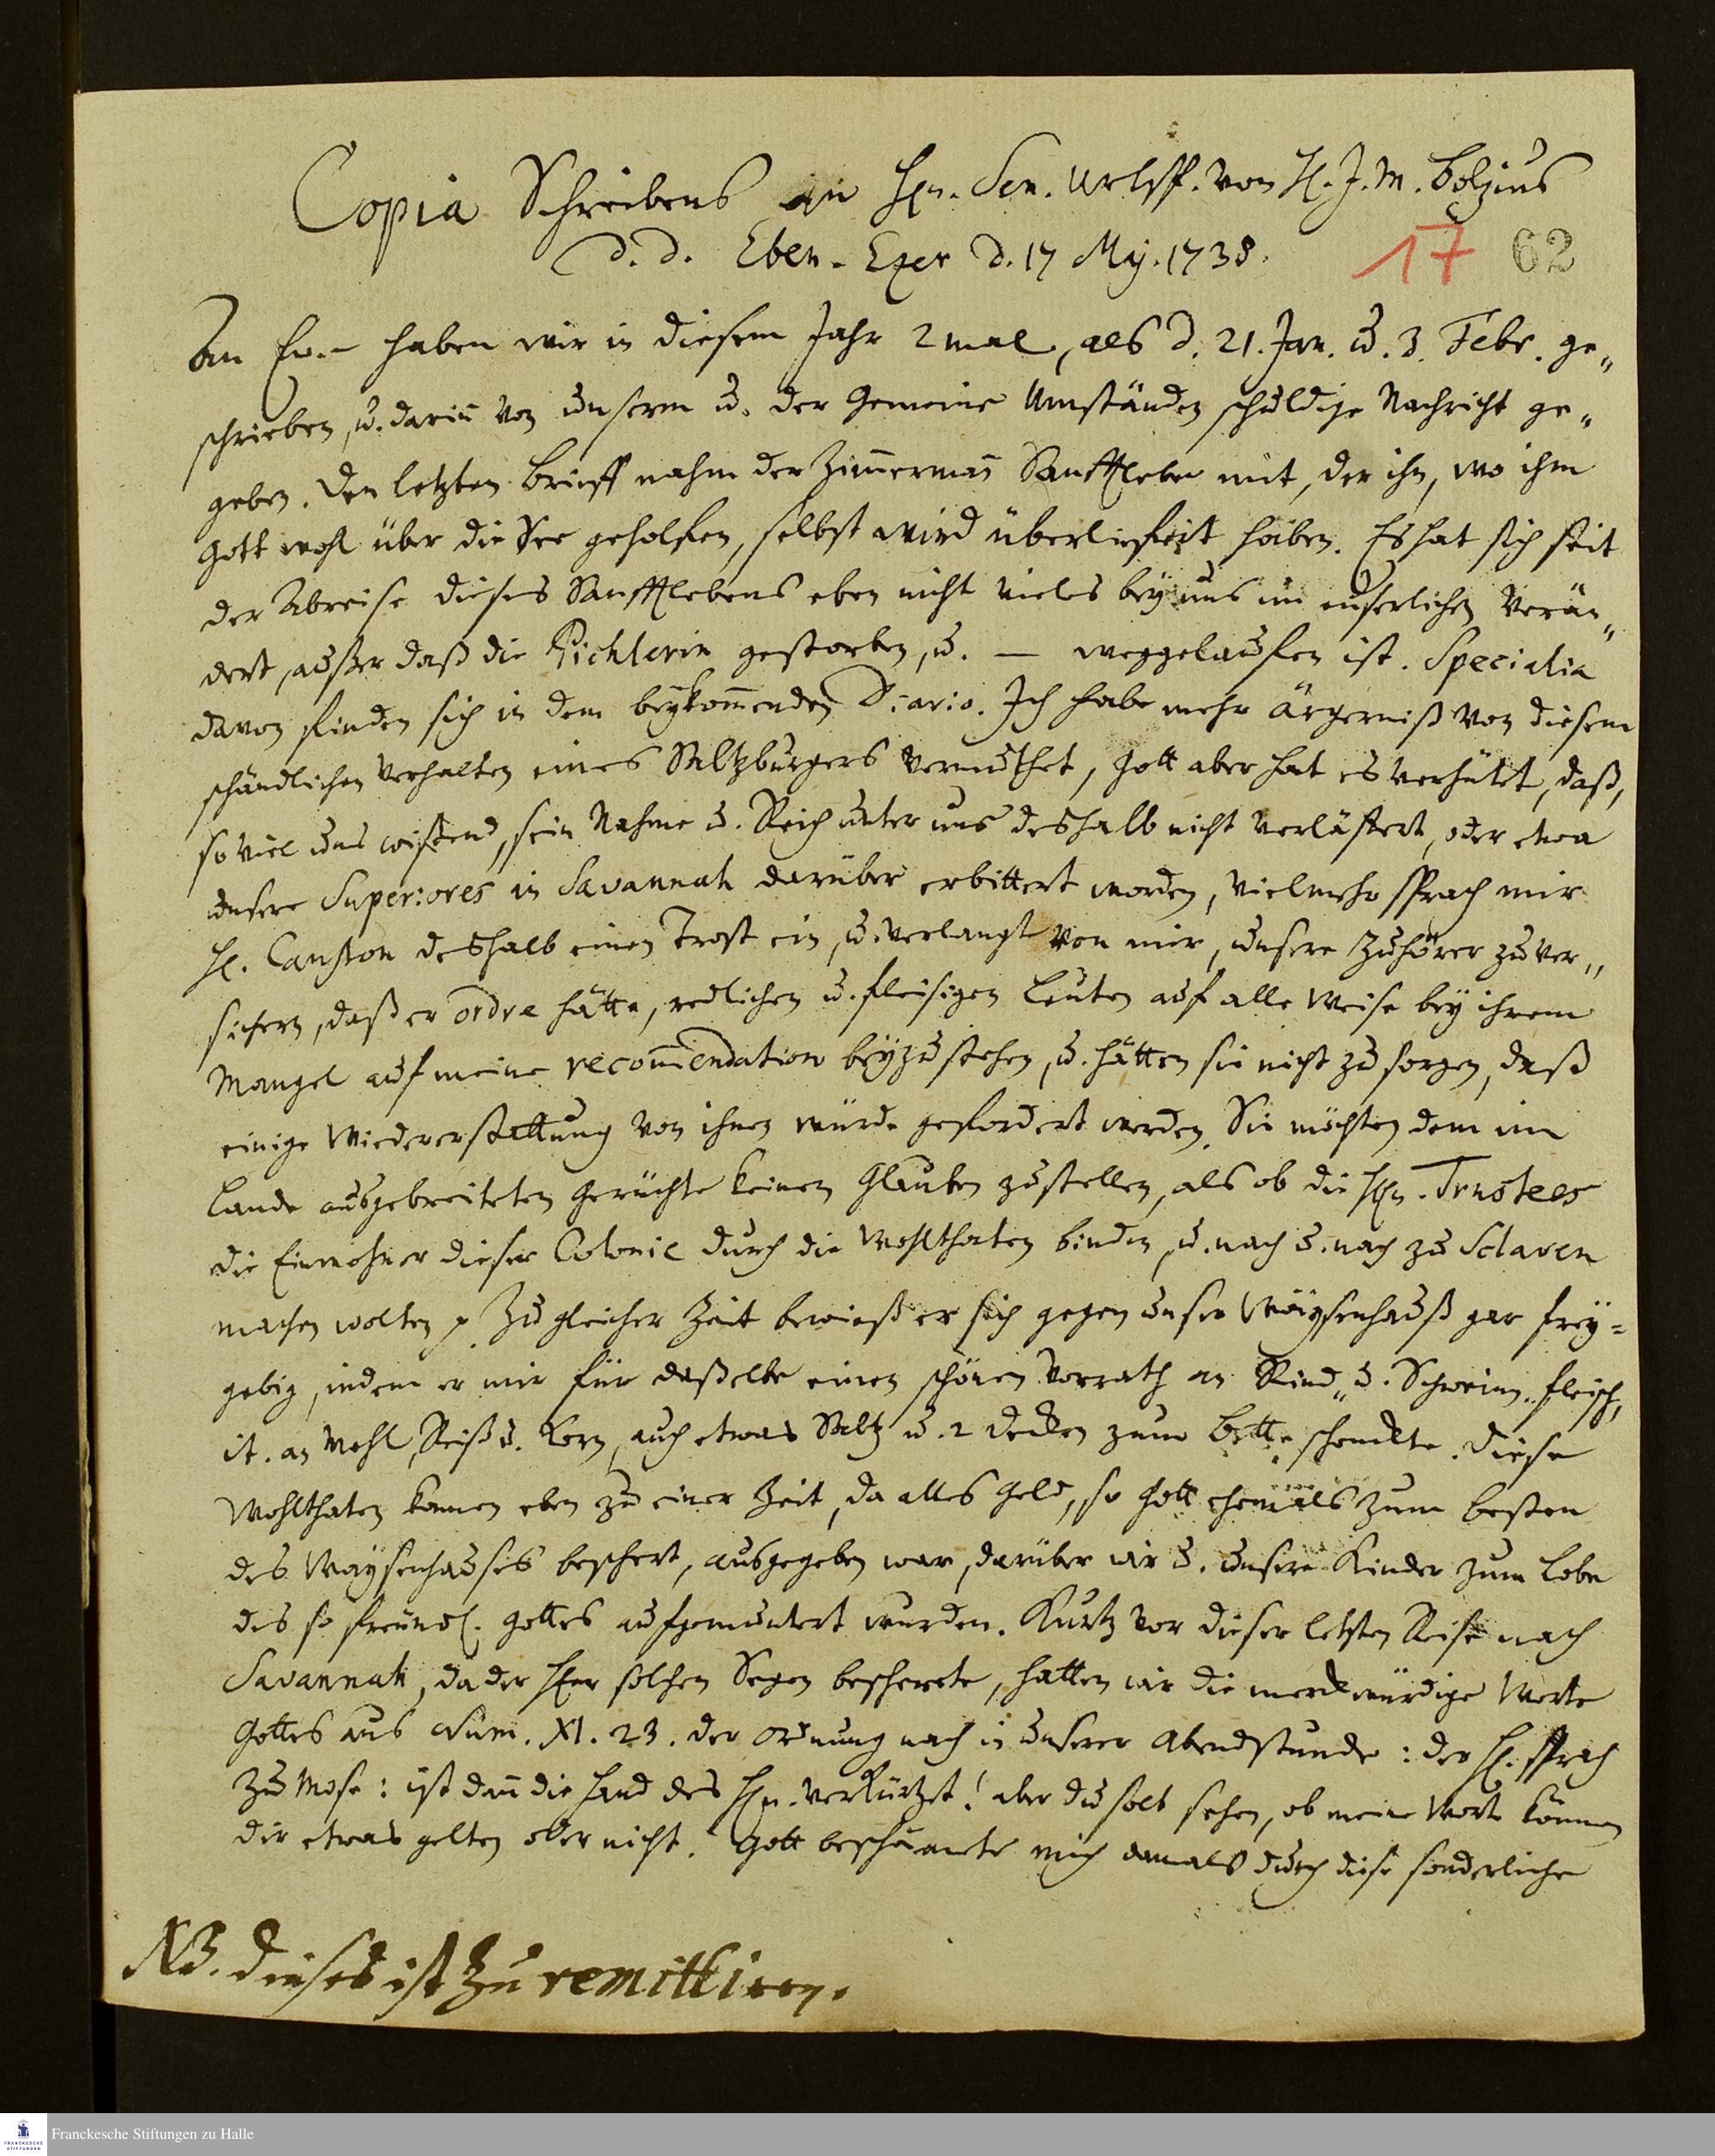 Copia Schreibens an Hrn. Sen. Urlsp. von H. J. M. Bolzius
d. d. Eben-Ezer d. 17 Maj. 1738.
17 62
An Ew.- haben wir in diesem Jahr 2 mal, als d. 21. Jan. u. 3. Febr. ge„
schrieben, u. dariñ von unserm u. der Gemeine Umständen schuldige Nachricht ge„
geben. Den letzten Brieff nahm der Zim̃ermañ Sanftleben mit, der ihn, wo ihm
Gott wohl über die See geholfen, selbst wird überliefert haben. Es hat sich seit
der Abreise dieses Sanfftlebens eben nicht vieles bey uns im euserlichen verän„
dert, außer daß die Pichlerin gestorben, u. — weggelaufen ist. Specialia
davon finden sich in dem beykom̃enden Diario. Ich habe mehr ärgerniß von diesem
schändlichen Verhalten eines Saltzburgers vermuthet, Gott aber hat es verhütet, daß,
so viel uns wißend, sein Nahme u. Reich unter uns deshalb nicht verlästert, oder etwa
unsere Superiores in Savannah darüber erbittert worden, vielmehr sprach mir
H. Causton deshalb einen Trost ein, u. verlangt von mir, unsere Zuhörer zu ver„
sichern, daß er ordre hätte, redlichen u. fleisigen Leuten auf alle Weise bey ihrem
Mangel auf meine recom̃endation beyzustehen, u. hätten sie nicht zu sorgen, daß
einige Wiedererstattung von ihnen würde gefordert werden. Sie möchten dem im
Lande ausgebreiteten Gerüchte keinen Glauben zustellen, als ob die Hrn. Trustees
die Einwohner dieser Colonie durch die Wohlthaten binden, u. nach u. nach zu Sclaven
machen wolten p. Zu gleicher Zeit bewieß er sich gegen unser Waysenhauß gar frey=
gebig, indem er mir für daßelbe einen schönen Vorrath an Rind„ u. Schweinefleisch,
it. an Mehl, Reiß u. Korn, auch etwas Saltz u. 2 Decken zum Bette schenckte. Diese
Wohlthaten kamen eben zu einer Zeit, da alles Geld, so Gott ehemals zum besten
des Waysenhauses beschert, ausgegeben war, darüber wir u. unsere Kinder zum Lobe
des so freundl. Gottes aufgemuntert wurden. Kurtz vor dieser letzten Reise nach
Savannah, da der Herr solchen Segen bescherete, hatten wir die merckwürdige Worte
Gottes aus Num. XI. 23. der Ordnung nach in unserer Abendstunde: der H. sprach
zu Mose: ist dañ die Hand des Hrn. verkürtzet! aber du solt sehen, ob meine Worte können
dir etwas gelten oder nicht. Gott beschämete mich damals durch diese sonderliche
NB. dieses ist zu remittiren.
Franckesche Stiftungen zu Halle